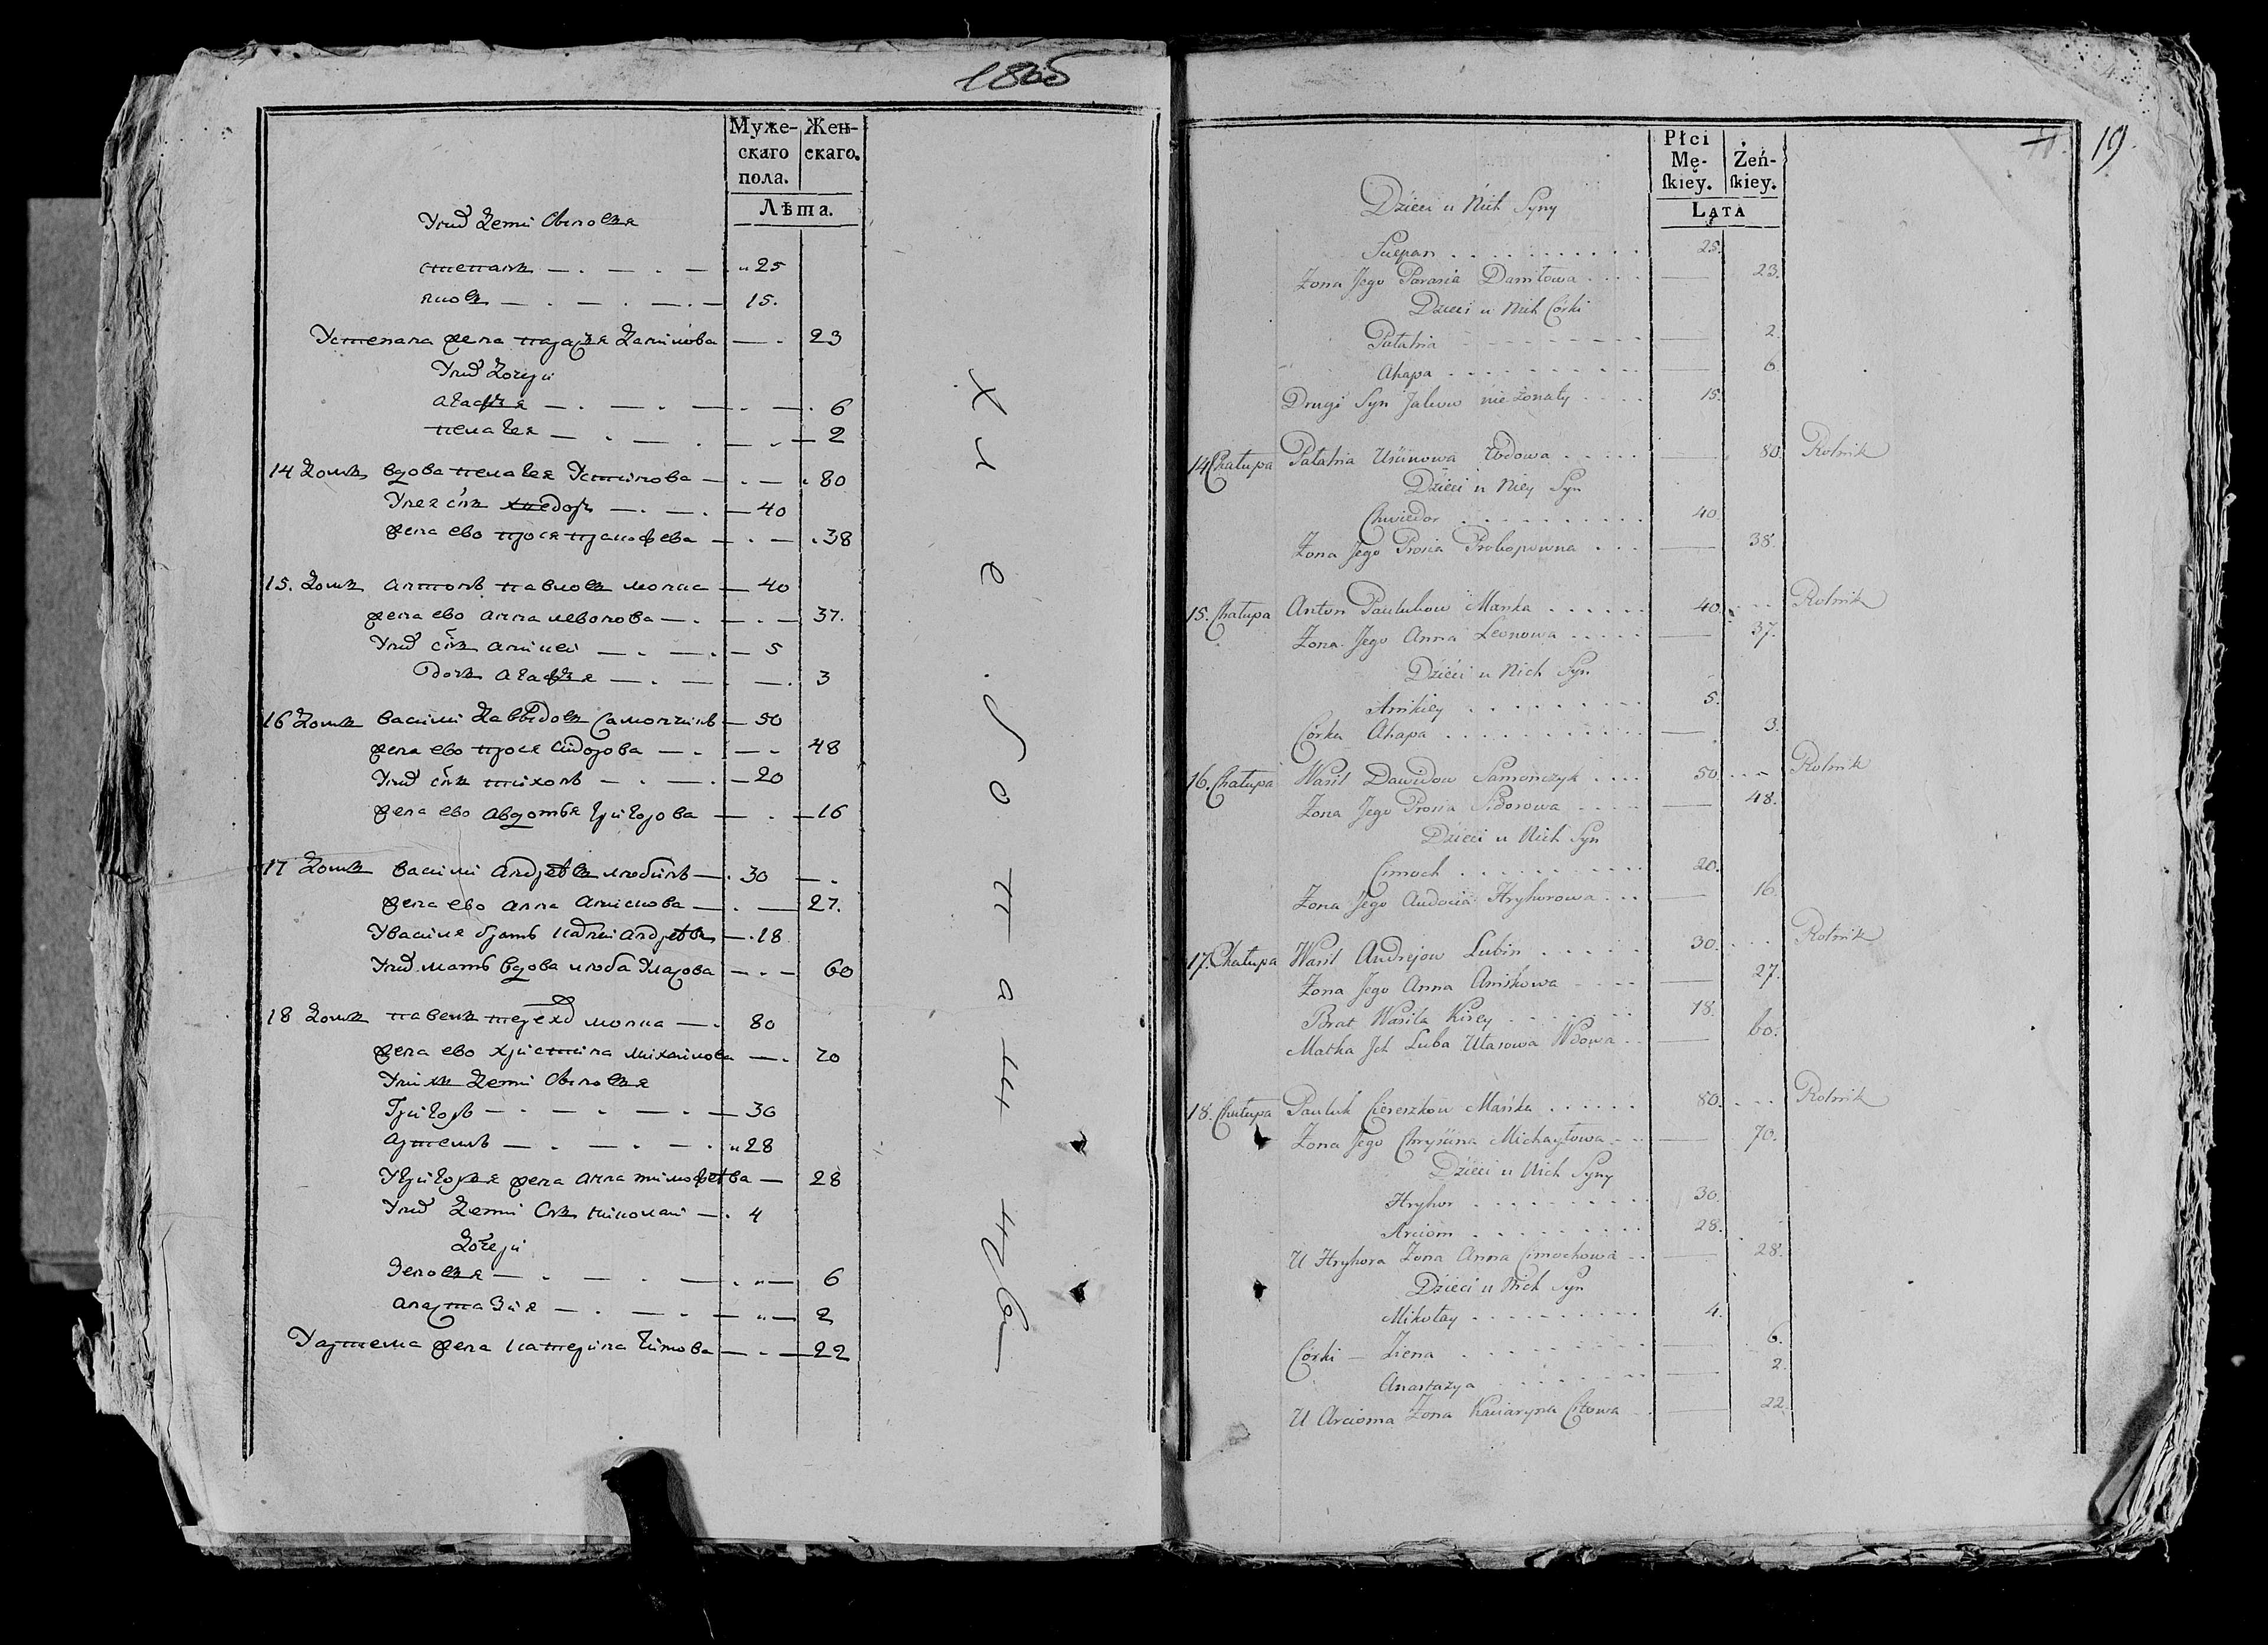 1805
Муже- Жен-
скаго скаго.
пола.
Лѣта.
У нихъ дети сыновья
степанъ 25
яковъ 15.
У степана жена парася данилова 23
У нихъ дочери
агафья 6
пелагея 2
14 домъ вдова пелагея Устинова 80
У нея сынъ хведоръ 40
жена ево прося 38
15. домъ антонъ павловъ 40
жена ево анна левонова 37.
У нихъ сынъ аникей 5
дочь агафья 3
16 домъ василий давыдовъ 50
жена ево прося сидорова 48
У нихъ сынъ тихонъ 20
жена ево авдотья григорова 16
17 домъ василий андреевъ любинъ 30
жена ево анна анискова 27.
У василя братъ андреевъ 18
У нихъ мать вдова люба 60
18 домъ павелъ 80
жена ево христина михайлова 70
У нихъ дети сыновья
Григоръ 30
артемъ 28
У григорья жена анна тимофеева 28
У нихъ дети сынъ николай 4
дочери
6
анастазия 2
У артема жена катерина титова 22
19.
Płci
Mę- Żeń-
skiey. skiey.
LATA
Dzieci u Nich Syny
Sciepan 25.
Żona Jego Parasia Daniłowa 23.
Dzieci u Nich Córki
Pałahia 2
Ahapa 6
Drugi Syn Jakow nie żonaty 15.
14 Chałupa Pałahia Uscinowa Wdowa 80. Rolnik
Dzieci u Niey Syn
Chwiedor 40.
Żona Jego Prosia Prokopowna 38.
15. Chałupa Anton Paulukow Mańka 40. Rolnik
Żona Jego Anna Leonowa 37.
Dzieci u Nich Syn
Anikiey 5.
Córka Ahapa 3.
16. Chałupa Wasil Dawidow Samonczyk 50. Rolnik
Żona Jego Prosia Sidorowa 48.
Dzieci u Nich Syn
Cimoch 20.
Żona Jego Audocia Hryhorowa 16.
17. Chałupa Wasil Andrejow Lubin 30. Rolnik
Żona Jego Anna Aniskowa 27.
Brat Wasila Kirey 18.
Matka Jch Luba Ułasowa Wdowa 60.
18. Chałupa Pauluk Ciereszkow Mańka 80. Rolnik
Żona Jego Chryscina Michayłowa 70.
Dzieci u Nich Syny
Hryhor 30.
Arciom 28.
U Hryhora Żona Anna Cimochowa 28.
Dzieci u Nich Syn
Mikołay 4.
Córki Ziena 6.
Anastazya 2
U Arcioma Żona Kaciaryna Citowa 22